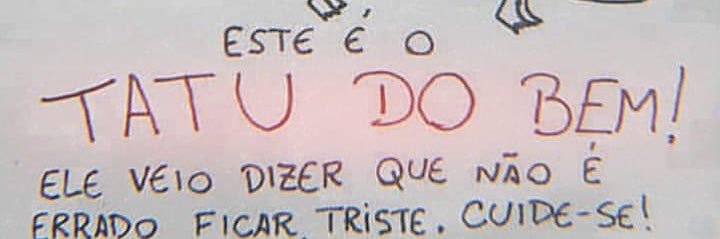 ESTE É O
TATU DO BEM!
ELE VEIO DIZER QUE NÃO É
ERRADO FICAR TRISTE. CUIDE-SE!